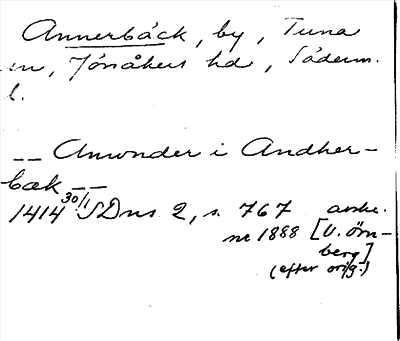 Annerbäck, by, Tuna
sn, Jönåkers hd, Söderm.
l.
-- Anwnder i Andher-
bæk --
1414 30/1 SDns 2, s. 767 avskr.
nr 1888 [U. Örn-
berg]
(efter orig.)